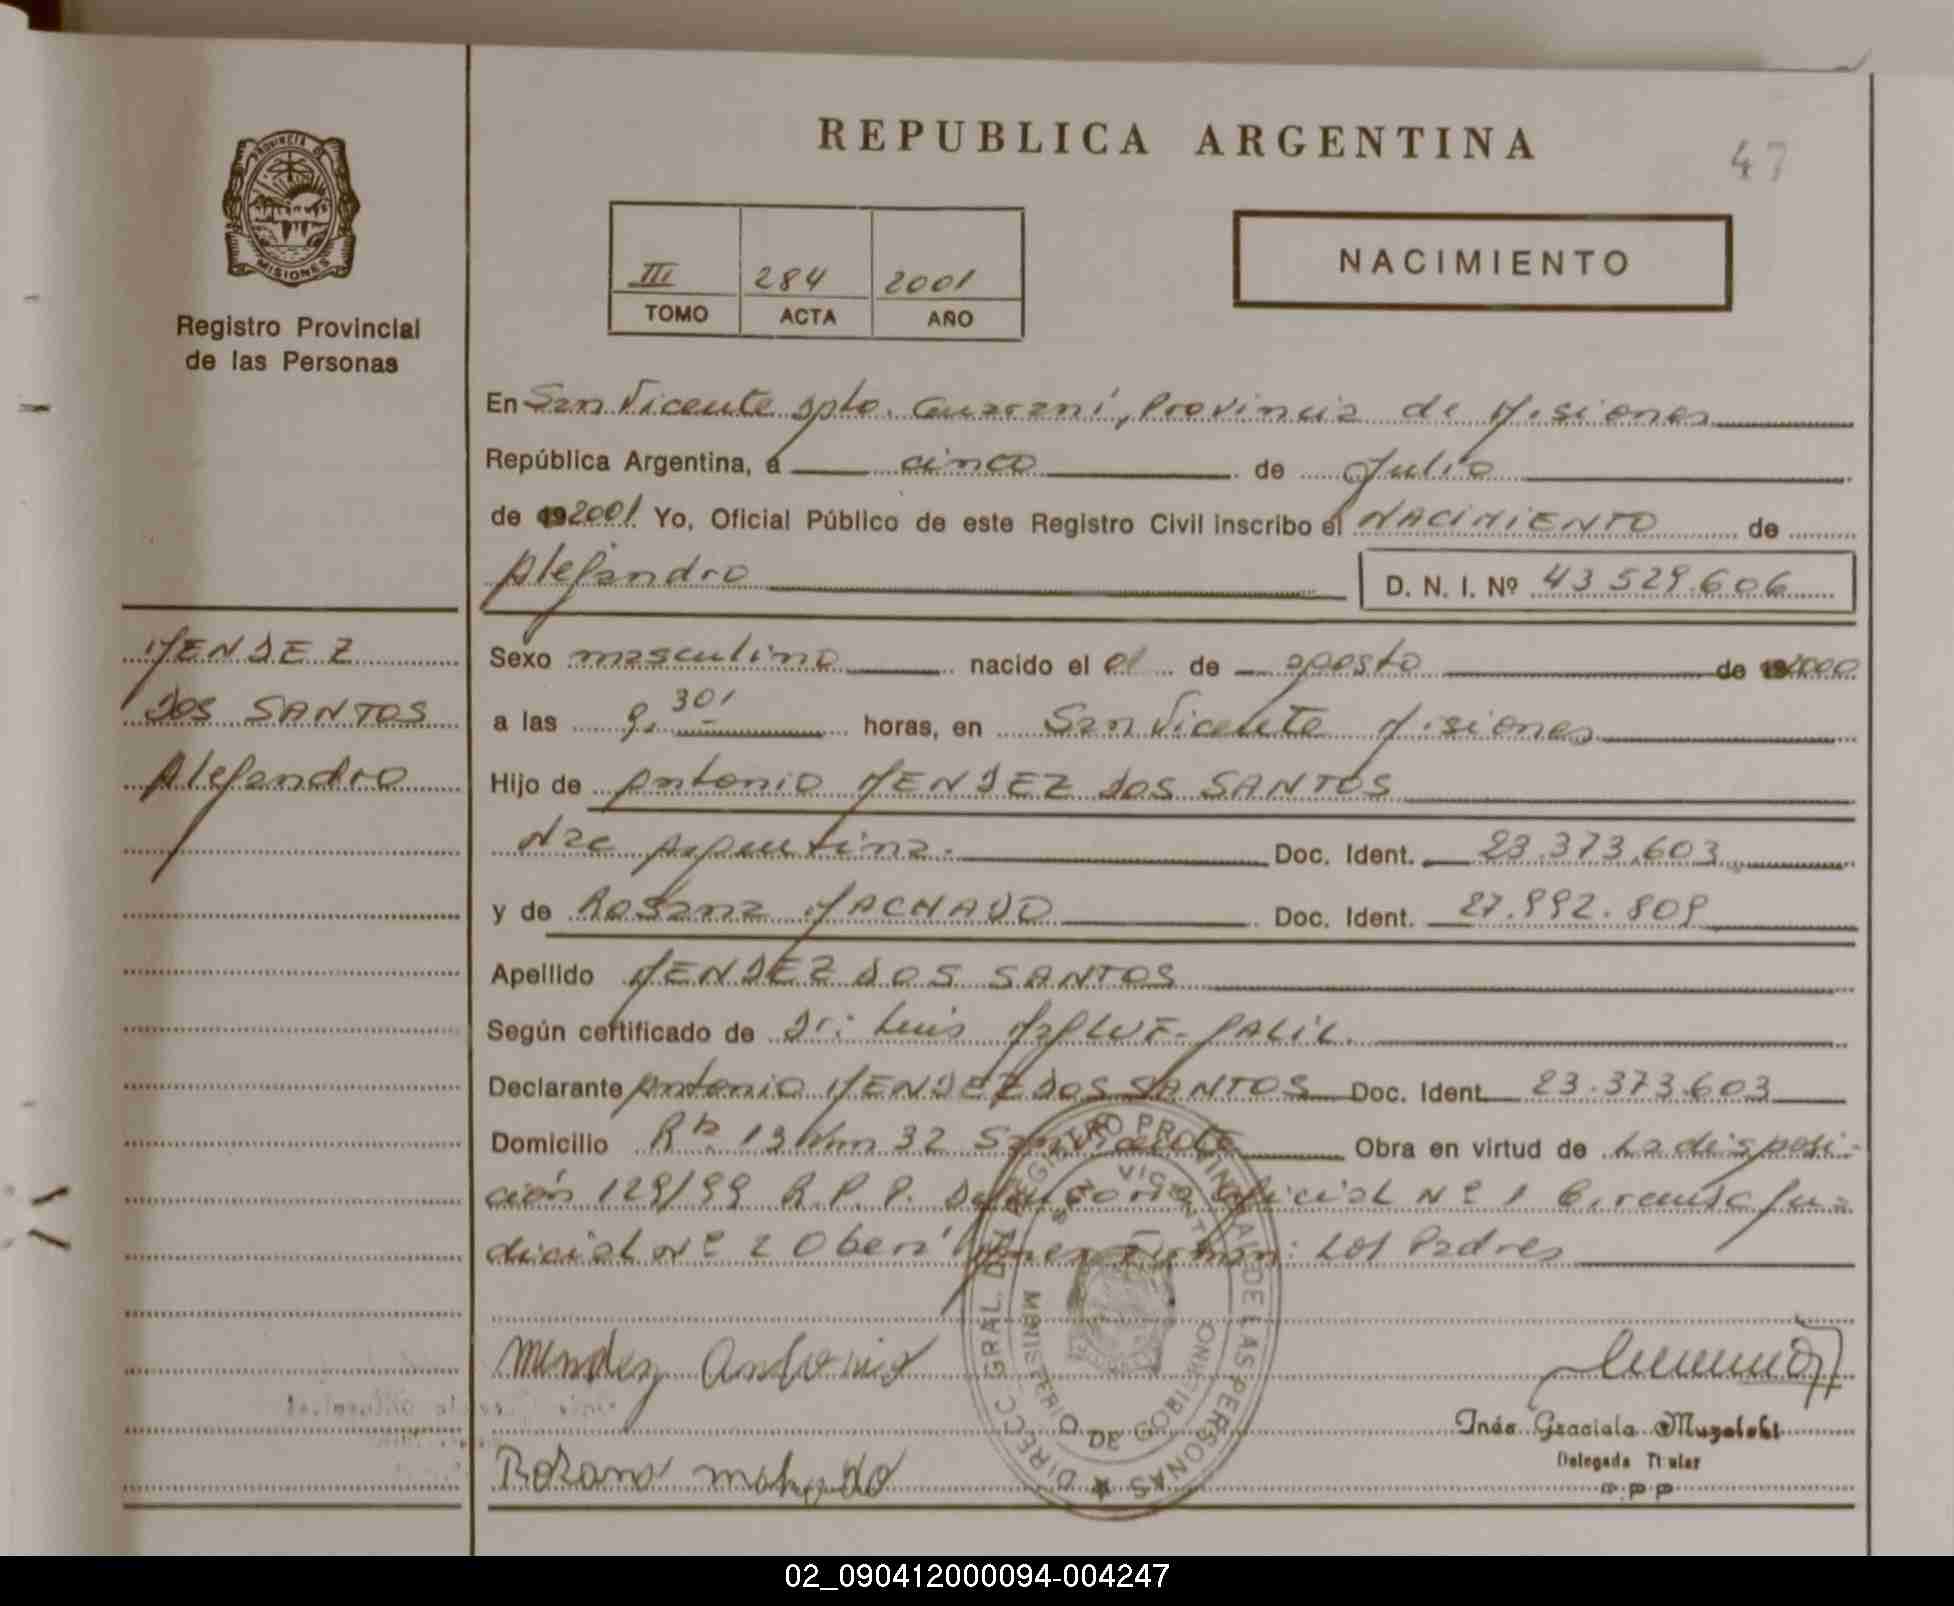 PROVINCIA DE
MISIONES
Registro Provincial
de las Personas
MENDEZ
DOS SANTOS
Alejandro
REPUBLICA ARGENTINA
47
III 284 2001
TOMO ACTA AÑO
NACIMIENTO
En San Vicente Dpto. Guaraní, Provincia de Misiones
República Argentina, a cinco de Julio
de 192001 Yo, Oficial Público de este Registro Civil inscribo el NACIMIENTO de
Alejandro D. N. I. Nº 43529.606
Sexo masculino nacido el 01 de agosto de 192000
a las 9. 30' horas, en San Vicente Misiones
Hijo de Antonio MENDEZ DOS SANTOS
Nac Argentina. Doc. Ident. 23.373.603
y de Rosana MACHADO Doc. Ident. 27.992.809
Apellido MENDEZ DOS SANTOS
Según certificado de Dr: Luis
Declarante Antonio MENDEZ DOS SANTOS Doc. Ident. 23.373.603
Domicilio Rta 13 Km 32 San Vicente Obra en virtud de La disposi-
ción 129/99 R.P.P. Defensoria Oficial Nº 1 Circunsc Ju-
dicial Nº 2 Oberá Mnes Firman: Los Padres
Mendez Antonio
Rozana machado
DIRECC GRAL. DEL REGISTRO PROVINCIAL DE LAS PERSONAS
S. VICENTE
MINISTERIO DE GOBIERNO
Inés Graciela
Delegada Titular
R P P
02_090412000094-004247